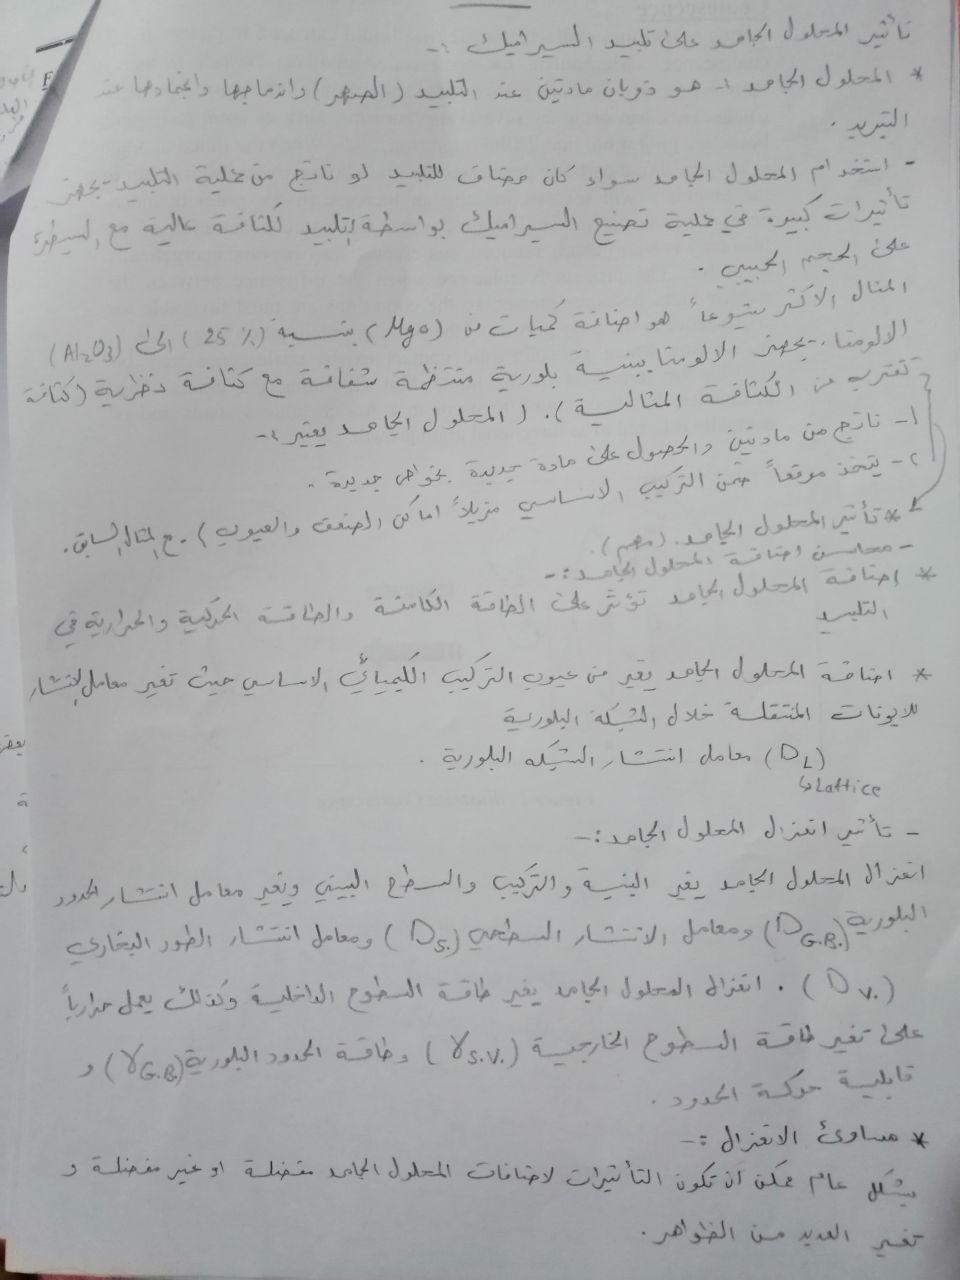 تأثير المحلول الجامد على تلبيد السيراميك :-
* المحلول الجامد :- هو ذوبان مادتين عند التلبيد (الصهر) واندماجها وانجمادها عند
التبريد .
- استخدام المحلول الجامد سواء كان مضاف للتلبيد او ناتج من عملية التلبيد يجهز
تأثيرات كبيرة في عملية تصنيع السيراميك بواسطة التلبيد لكثافة عالية مع السيطرة
على الحجم الحبيبي .
المثال الاكثر شيوعاً هو اضافة كميات من (Mgo) بنسبة (25 %) الى (Al2O3)
الالومنا . يجهز الالومنا ببنية بلورية منتظمة شفافة مع كثافة نظرية (كثافة
تقترب من الكثافة المثالية ) . ( المحلول الجامد يعتبر :-
1- ناتج من مادتين والحصول على مادة جديدة بخواص جديدة .
2- يتخذ موقعاً ضمن التركيب الاساسي مزيلاً اماكن الضعف والعيوب ) . ع المثال السابق .
* تأثير المحلول الجامد . (مهم) .
- محاسن اضافة المحلول الجامد :-
* إضافة المحلول الجامد تؤثر على الطاقة الكامنة والطاقة الحركية والحرارية في
التلبيد
* اضافة المحلول الجامد يغير من عيوب التركيب الكيميائي الاساسي حيث تغير معامل الانتشار
للايونات المنتقلة خلال الشبكة البلورية
(DL) معامل انتشار الشبكه البلورية .
↳ Lattice
- تأثير انعزال المحلول الجامد :-
انعزال المحلول الجامد يغير البنية والتركيب والسطح البيني ويغير معامل انتشار الحدود
البلورية (DG.B.) ومعامل الانتشار السطحي (DS.) ومعامل انتشار الطور البخاري
(DV.) . انعزال المحلول الجامد يغير طاقة السطوح الداخلية وكذلك يعمل حرارياً
على تغير طاقة السطوح الخارجية (γS.V.) وطاقة الحدود البلورية (γG.B.) و
قابلية حركة الحدود .
* مساوئ الانعزال :-
بشكل عام ممكن ان تكون التأثيرات لاضافات المحلول الجامد مفضلة او غير مفضلة و
تغير العديد من الظواهر .